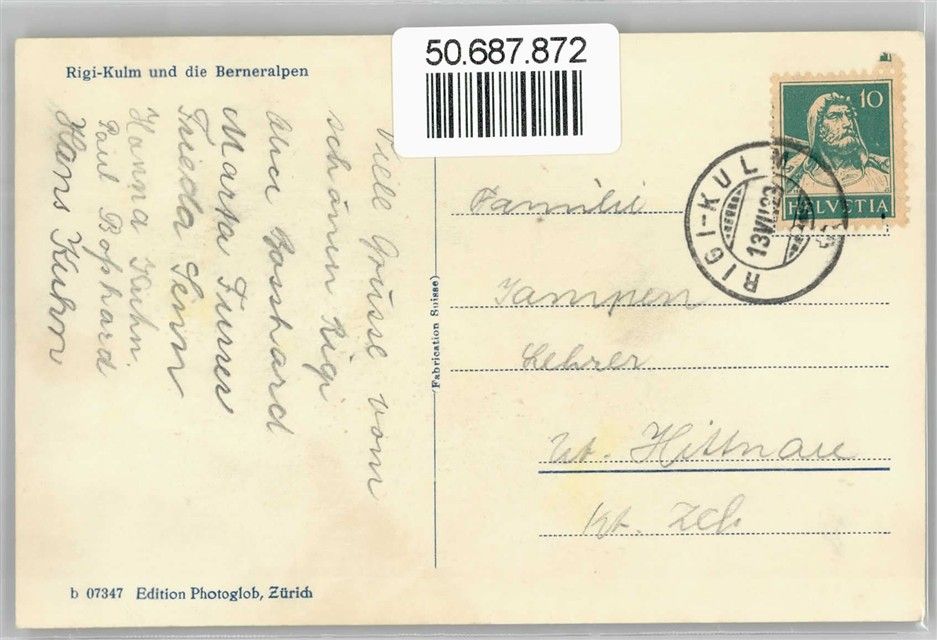 50.687.872
Rigi-Kulm und die Berneralpen
Viele Grüsse vom
schönen Rigi
Bosshard
Marta Furrer
Frieda Senn
Hanna Kuhn
Paul Boßhard
Hans Kuhn
(Fabrication Suisse)
10
HELVETIA
RIGI-KULM
13.VII.23
Familie
Kampen
Lehrer
Ut. Hittnau
Kt. Zch
b 07347 Edition Photoglob, Zürich